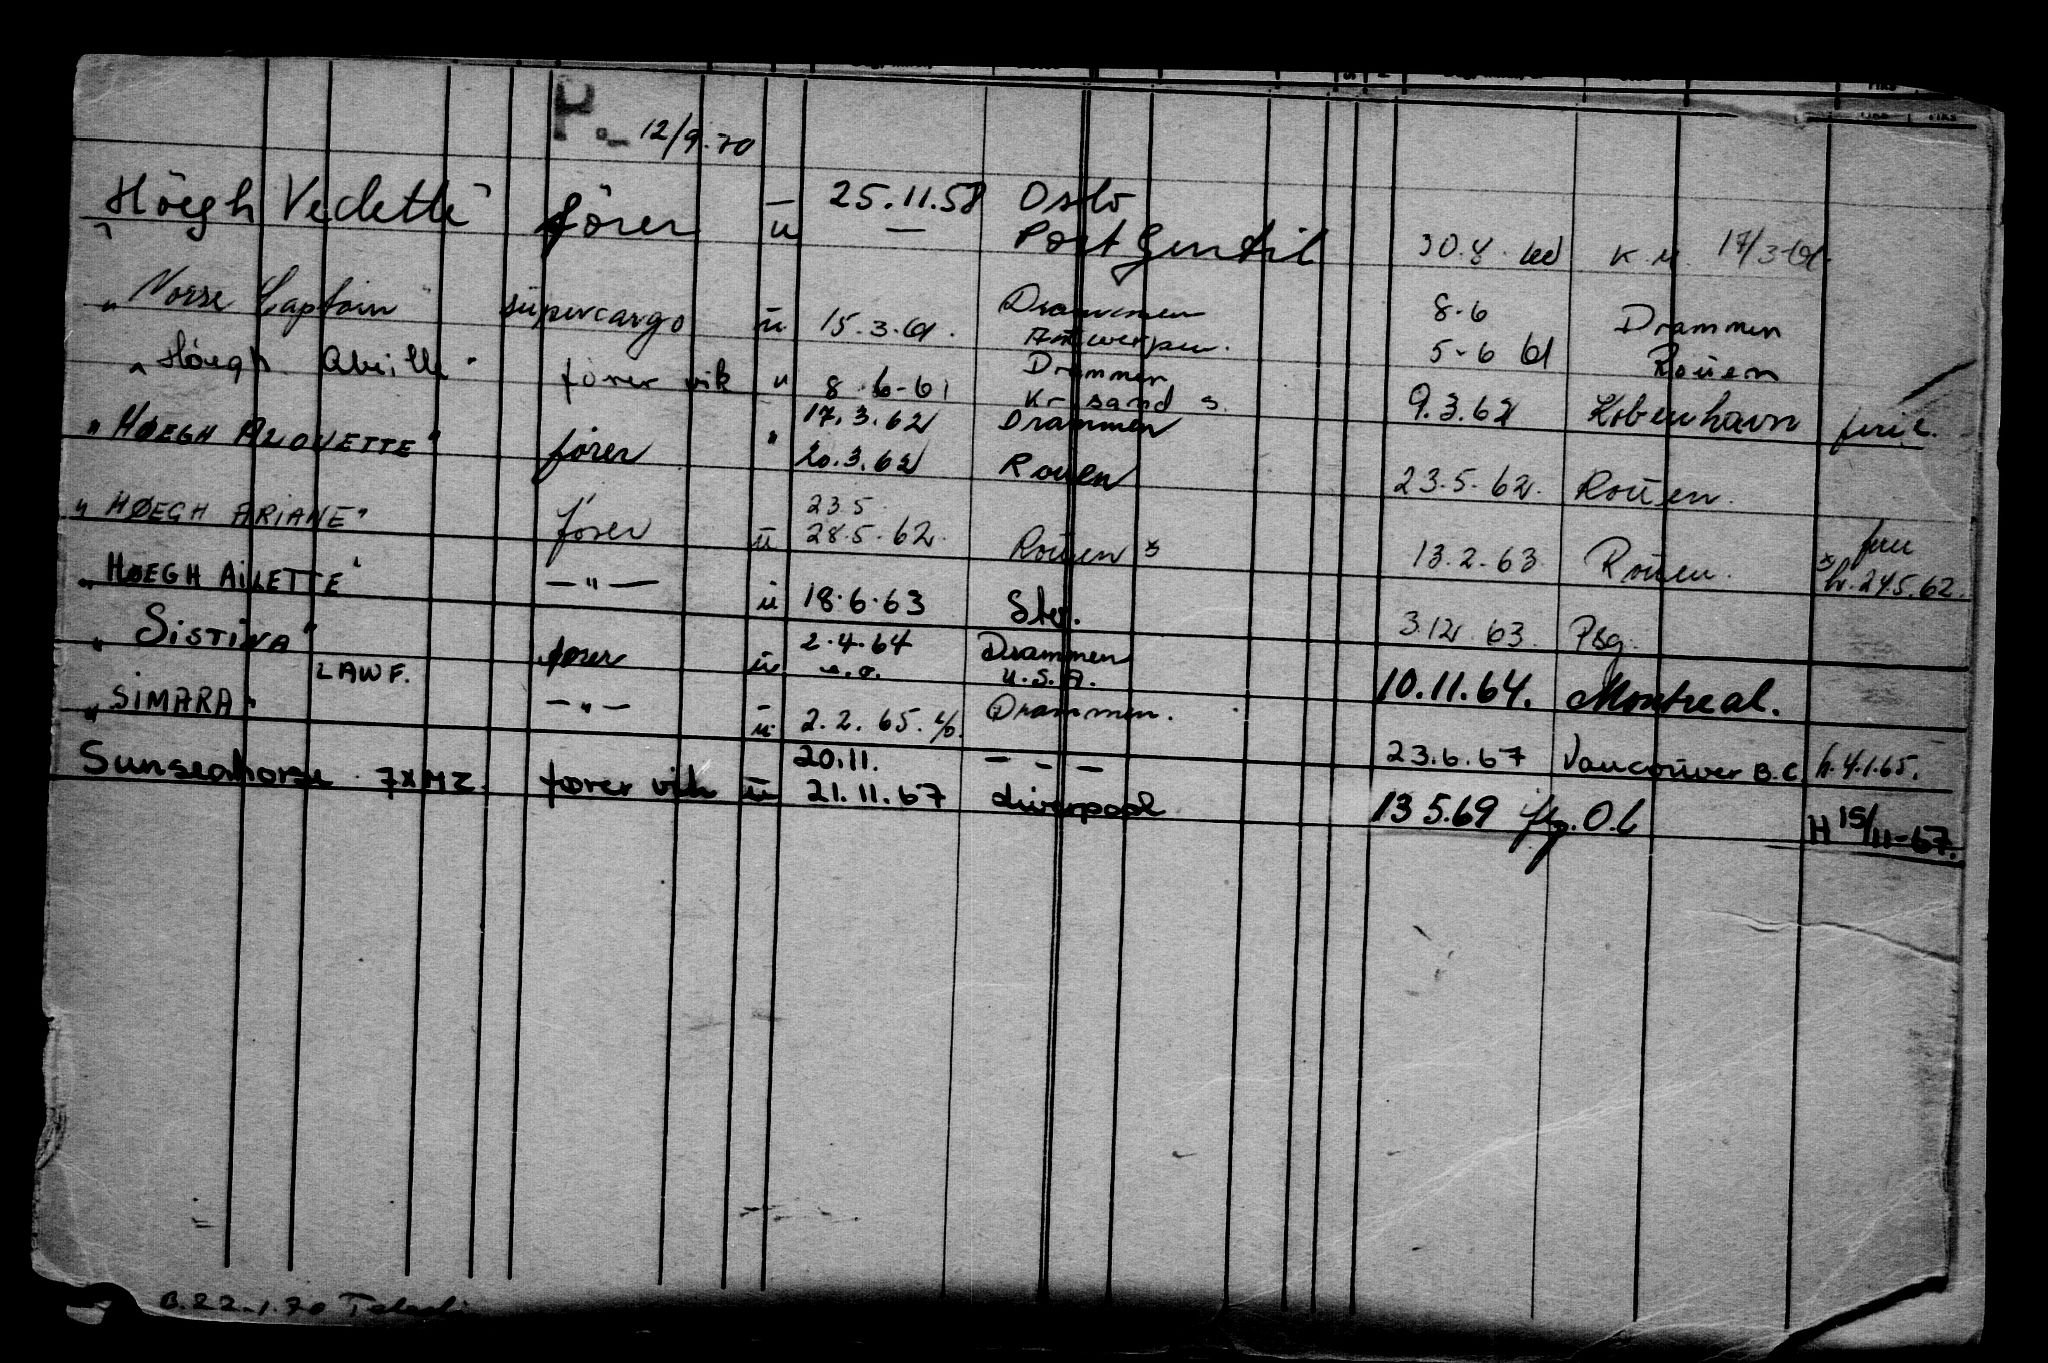 P.- 12/9.70
Höegh Vedette" förer - 25.11.58 Oslo
" u — Port Gentil 30.8. K.M. 17/3-61.
" Norse Captain " supercargo u 15.3.61. Drammen 8.6 Drammen
Antwerpen. 5-6 61 Rouen
" Höegh Abeille " förer vik " 8.6-61 Drammen
Kr.sand S. 9.3.62 Kobenhavn ferie.
" HØEGH ALOUETTE " fører " 17.3.62 Drammen
20.3.62 Rouen 23.5.62. Rouen.
" HØEGH ARIANE" fører u 23.5.
28.5.62. Rouen * 13.2.63. Rouen. * h. 24.5.62.
" HØEGH AILETTE" — " — u 18.6.63 3.12.63. Pbg.
" SISTINA " fører u 2.4.64 Drammen
u.s. U.S.A. 10.11.64. Montreal.
LAWF.
" SIMARA " — " — u 2.2.65. Drammen. 23.6.67 Vancouver B.C. h.4.1.65.
Sunseahorse 7XMZ. fører vik u 20.11. - - -
21.11.67 Liverpool 13 5.69 O.b H 15/11-67.
B.22.1.70